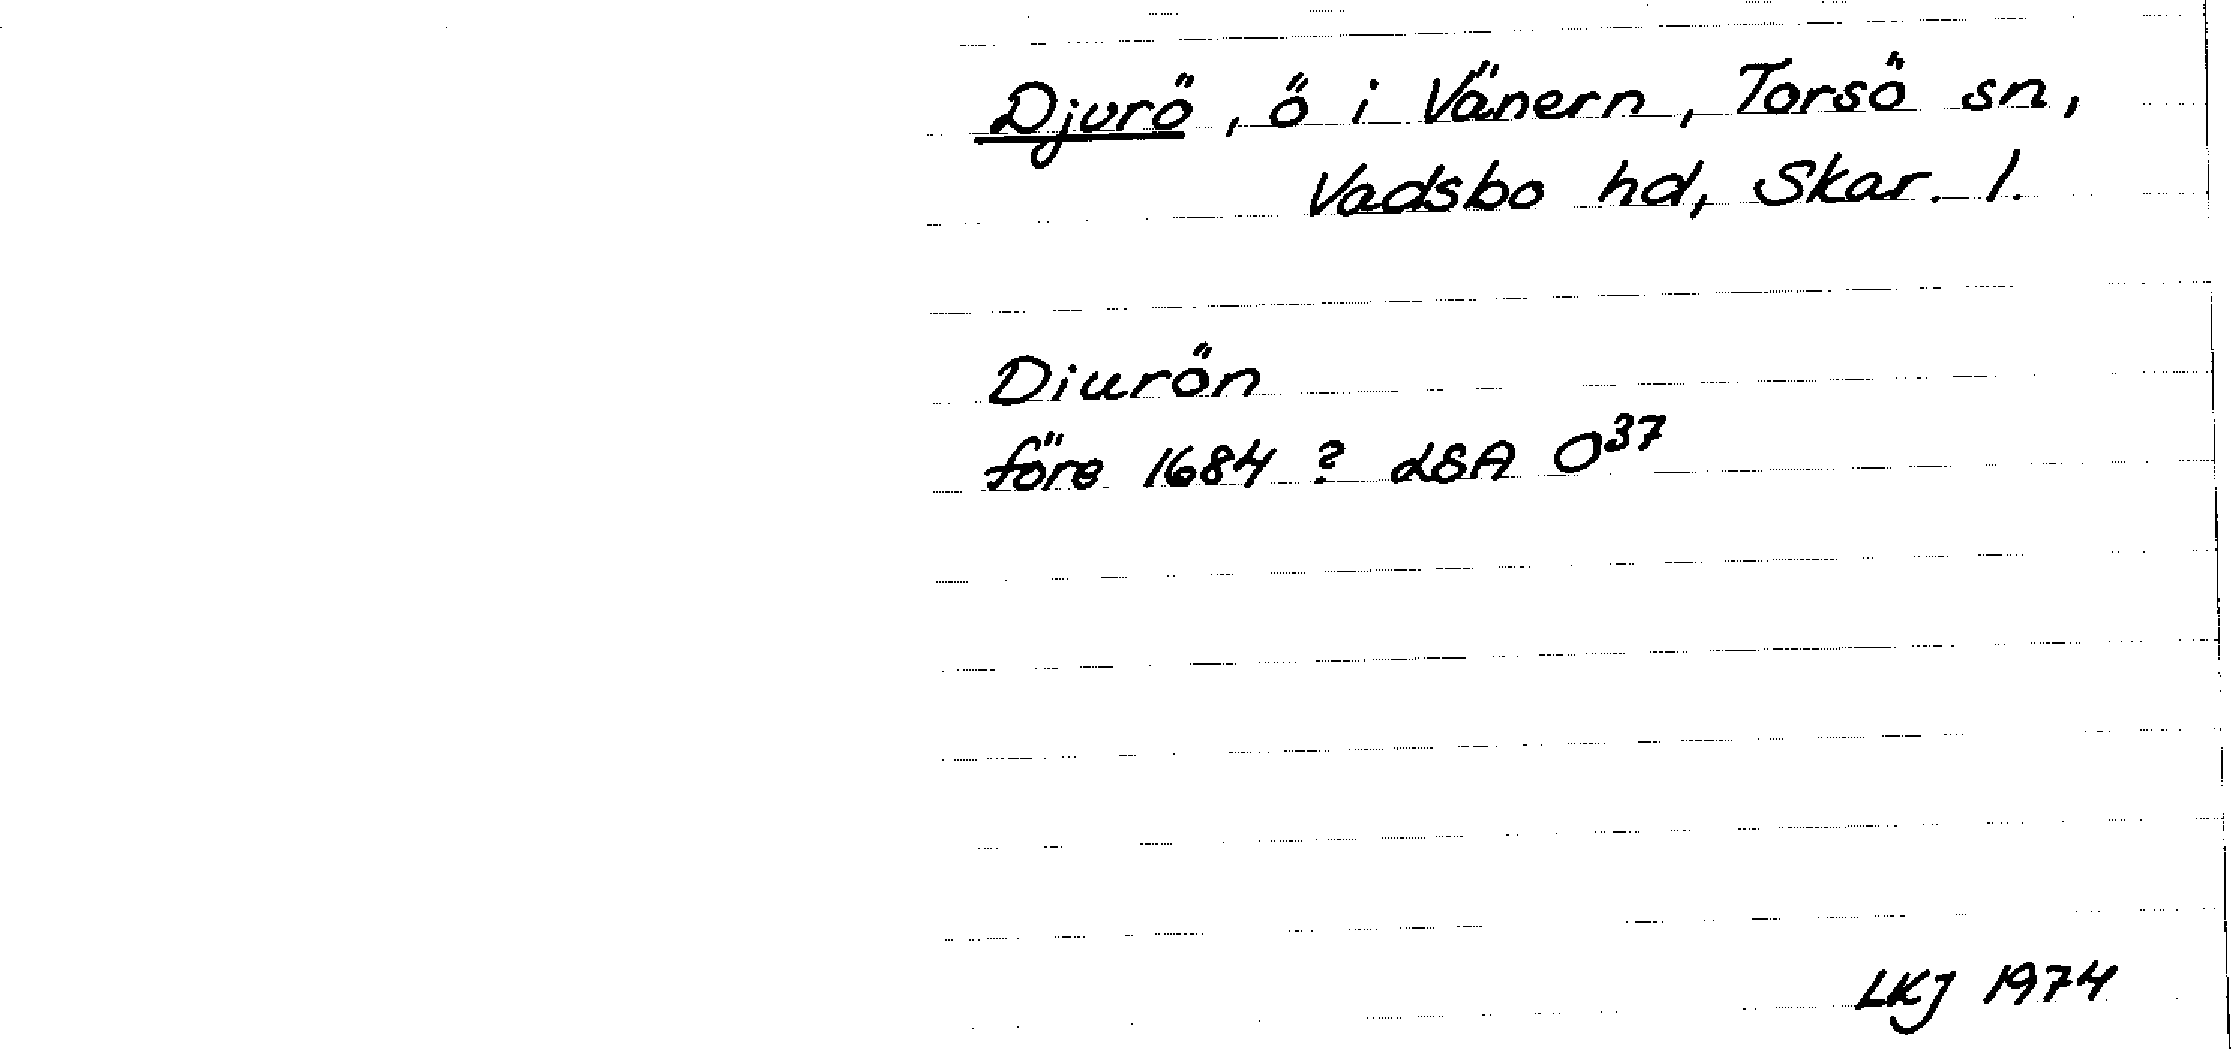 Djurö, ö i Vänern, Torsö sn,
Vadsbo hd, Skar. l.
Diurön
före 1684 ? LSA O³⁷
LKJ 1974